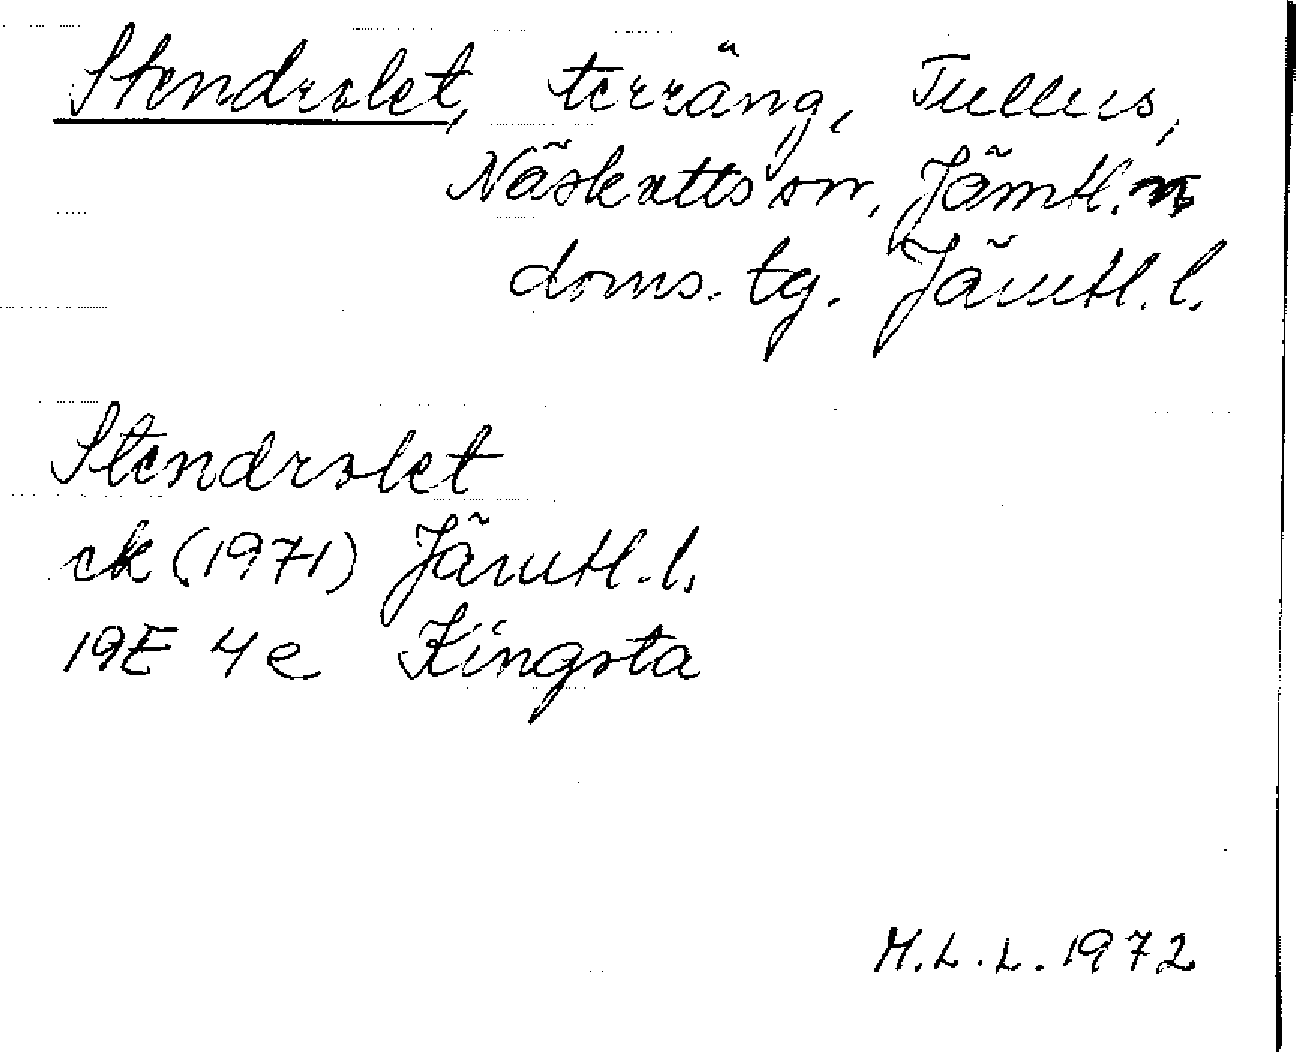 Stendrolet, terräng, Tullus,
Näskotts sn, Jämtl. n
doms. tg. Jämtl. l.
Stendrolet
ek (1971) Jämtl. l.
19E 4e Kingsta
M.L.L. 1972